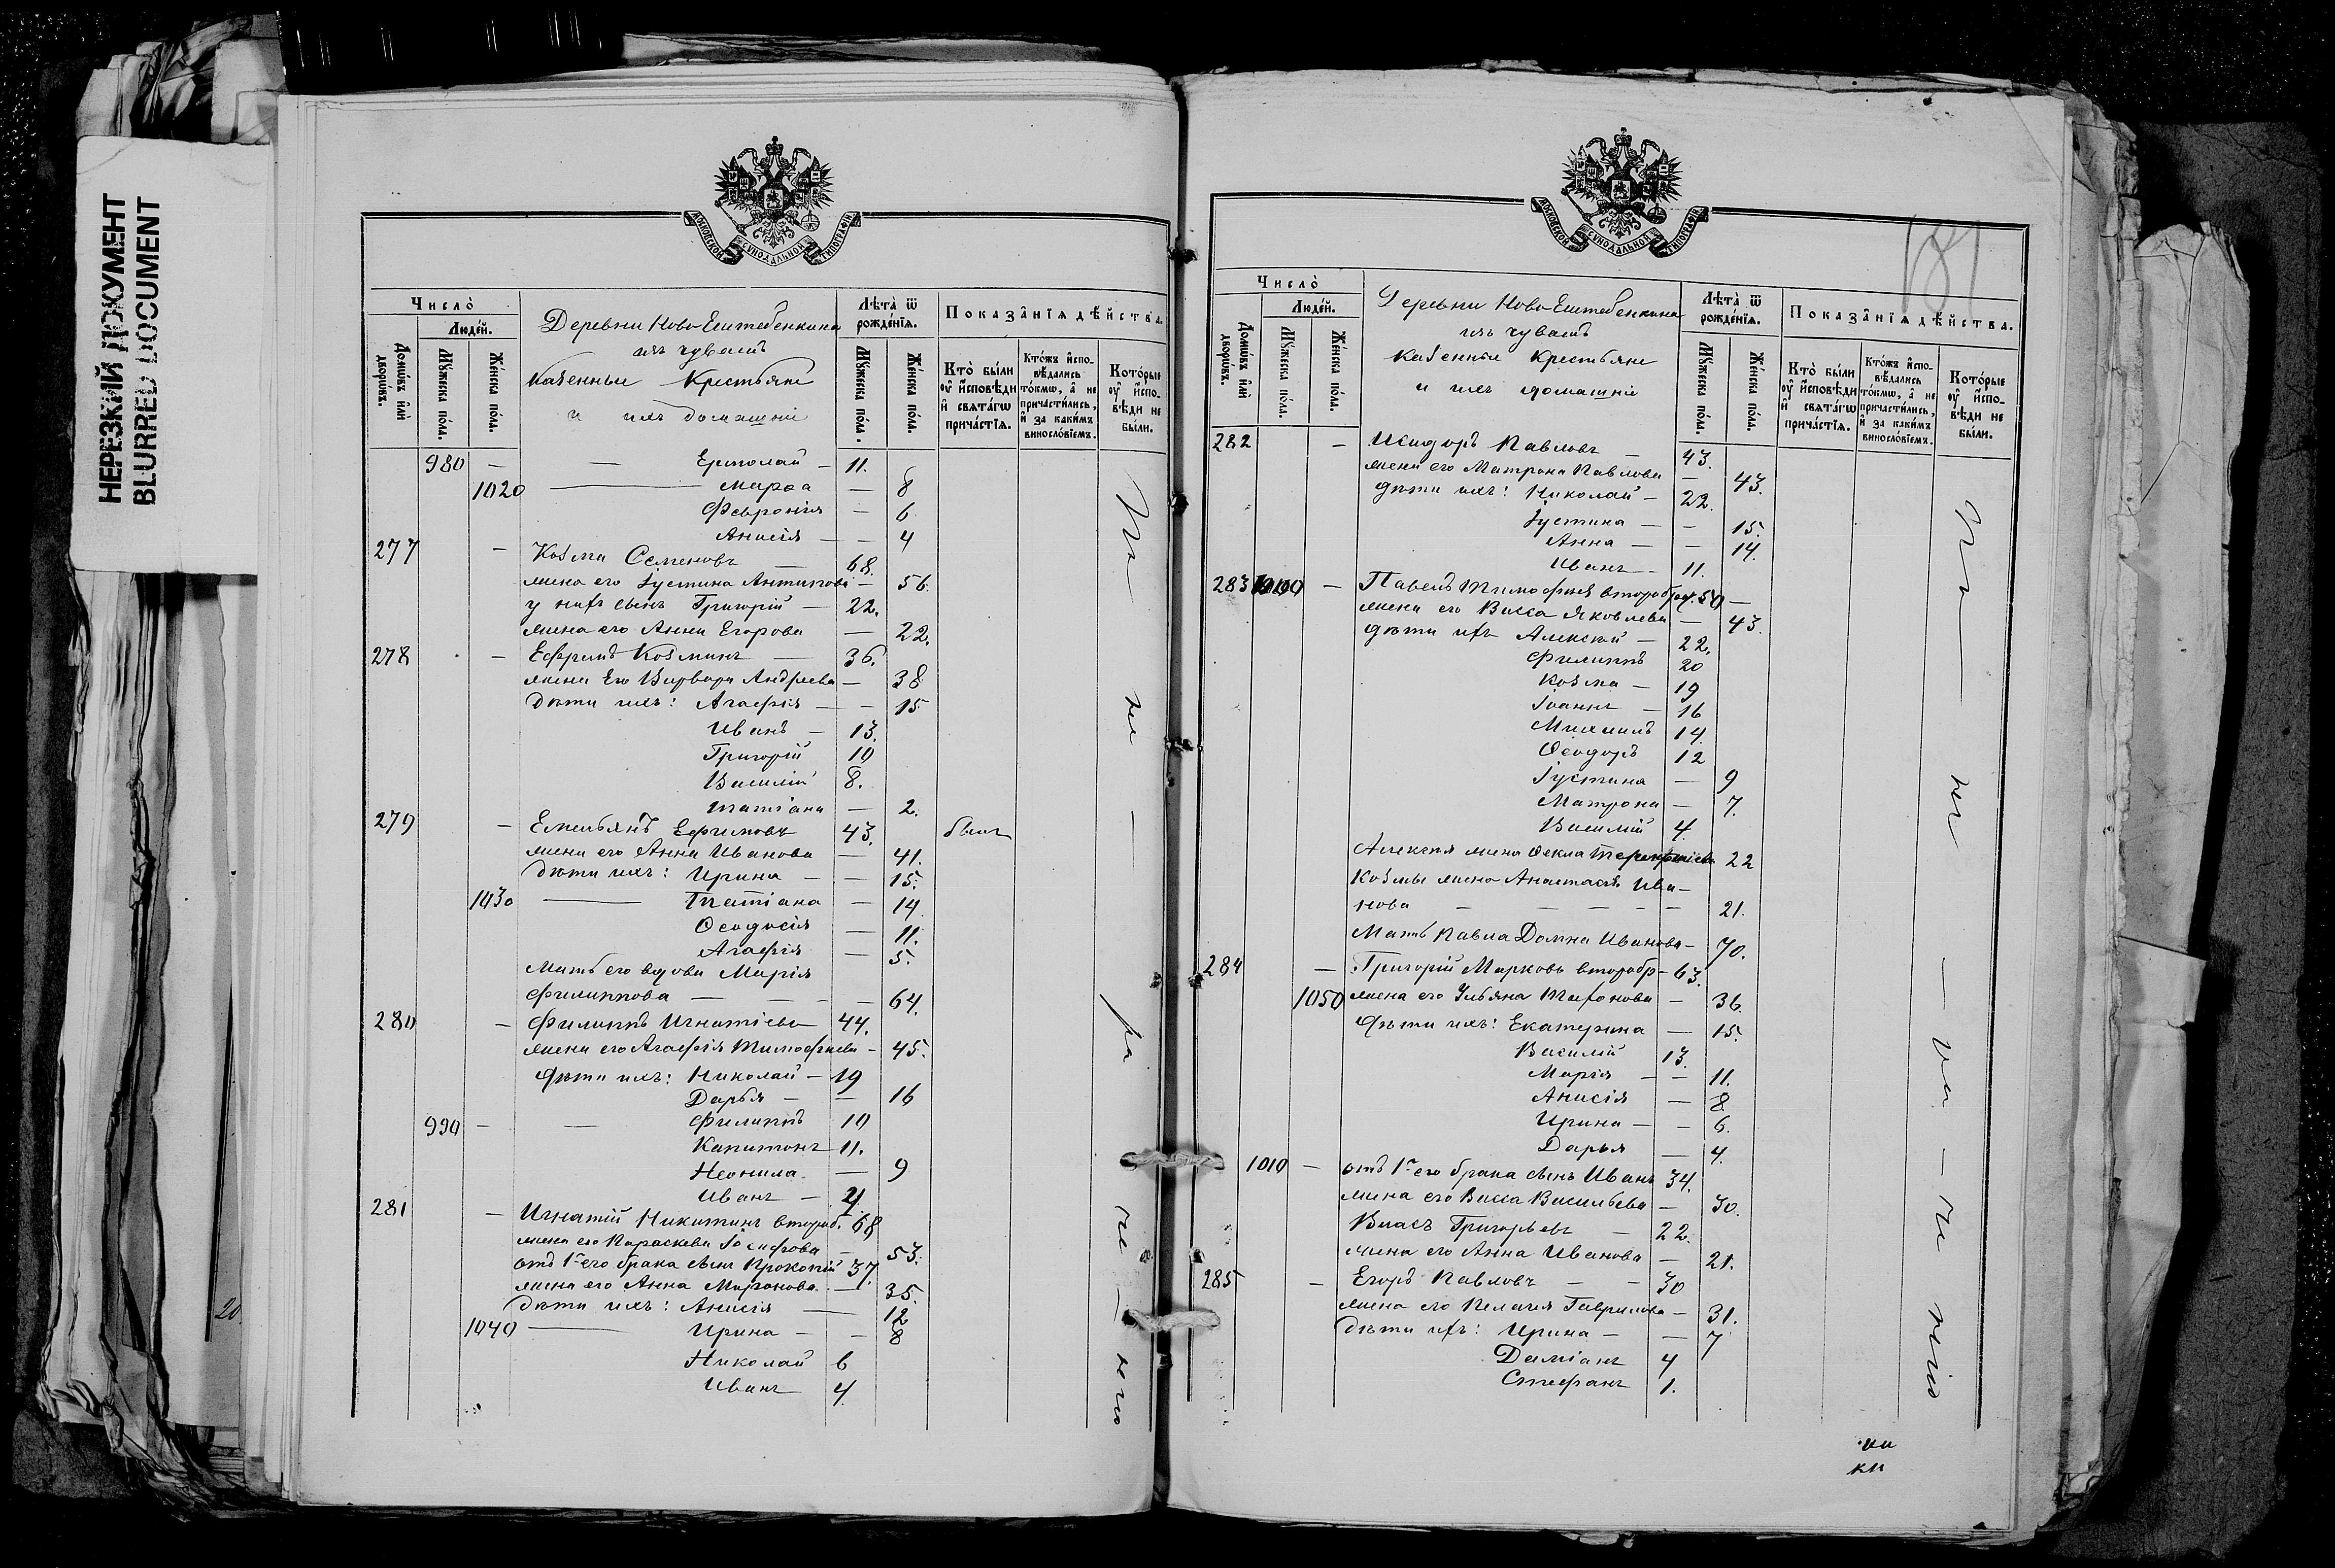 НЕРЕЗКИЙ ДОКУМЕНТ
BLURRED DOCUMENT
20.
МОСКОВСКОЙ СѴНОДАЛЬНОЙ ТИПОГРАФІИ
Число̀
Люде́й.
Домѡ́въ и҆лѝ дворѡ́въ.
Мꙋ́жеска по́ла.
Же́нска по́ла.
Деревни Ново-Ештебенкина
изъ чувашъ
казенные крестьяне
и ихъ домашніе
Лѣта̀ ѿ рожде́нїѧ.
Мꙋ́жеска по́ла.
Же́нска по́ла.
Показа̑нїѧ дѣ́йства.
Кто̀ бы́ли ᲂу҆ и҆́сповѣди и҆ свѧта́гѡ прича́стїѧ.
Кто́жъ и҆спо-
вѣ́дались
то́кмѡ, а҆ не
причасти́лись,
и҆ за каки́мъ
винословїемъ.
Кото́рые
ᲂу҆ и҆спо-
вѣди не
бы́ли.
980 — — Ермолай — 11.
1020 — Марѳа — 8
Февронія — 6.
Анисія — — 4
277 — Козма Семеновъ — 68.
жена его Іустина Антипова — 56.
у нихъ сынъ Григорій — 22.
жена его Анна Егорова — 22.
278 — Ефремъ Козминъ — 36.
жена Его Варвара Андреева — 38
дѣти ихъ: Агафія — — 15
Иванъ — 13.
Григорій 10
Василій 8.
Татіана — 2.
279 — Емельянъ Ефимовъ 43. былъ
жена его Анна Иванова — 41.
дѣти ихъ: Ирина — — 15.
1030 — Татіана — 14
Ѳеодосія — 11.
Агафія — 5.
Мать его вдова Марія
Филиппова — — — 64.
280 — Филиппъ Игнатіевъ 44.
жена его Агафія Тимофеева — 45.
Дѣти ихъ: Николай — 19
Дарья — — 16
990 — — Филиппъ 10
Капитонъ 11.
Неонила — 9
Иванъ — 4.
281 — Игнатій Никитинъ втораб. 68
жена его Параскева Іосифова — 53.
отъ 1-го его брака сынъ Прокопій 37.
жена его Анна Миронова — 35.
дѣти ихъ: Анисія — 12
1040 — Ирина — — 8
Николай 6
Иванъ 4.
МОСКОВСКОЙ СѴНОДАЛЬНОЙ ТИПОГРАФІИ
Число̀
Люде́й.
Домѡ́въ и҆лѝ дворѡ́въ.
Мꙋ́жеска по́ла.
Же́нска по́ла.
Деревни Ново-Ештебенкина
изъ чувашъ
казенные крестьяне
и ихъ домашніе
Лѣта̀ ѿ рожде́нїѧ.
Мꙋ́жеска по́ла.
Же́нска по́ла.
Показа̑нїѧ дѣ́йства.
Кто̀ бы́ли ᲂу҆ и҆́сповѣди и҆ свѧта́гѡ прича́стїѧ.
Кто́жъ и҆спо-
вѣ́дались
то́кмѡ, а҆ не
причасти́лись,
и҆ за каки́мъ
винословїемъ.
Кото́рые
ᲂу҆ и҆спо-
вѣди не
бы́ли.
282 — Исидоръ Павловъ — 43.
жена его Матрона Павлова — 43.
дѣти ихъ: Николай — 22.
Іустина — — 15.
Анна — — 14.
Иванъ — 11.
283 1000 — Павелъ Тимофеевъ 50 —
жена его Васса Яковлева — 43.
дѣти ихъ Алексѣй — 22.
Филиппъ 20
Козма — 19
Іоаннъ — 16
Михаилъ 14.
Ѳеодоръ 12
Іустина — 9
Матрона — 7.
Василій 4
Алексѣя жена Ѳекла 22
Козмы жена Анастасія Ива-
нова — — — — — 21.
Мать Павла Домна Иванова — 70.
284 — Григорій Марковъ вторабр — 63.
1050 жена его Ульяна Тихонова — 36.
Дѣти ихъ: Екатерина — 15.
Василій 13.
Марія — — 11.
Анисія — 8
Ирина — — 6.
Дарья — 4.
1010 — отъ 1-го его брака сынъ Иванъ 34.
жена его Васса Васильева — 30.
Власъ Григорьевъ — 22.
жена его Анна Иванова — 21.
285 — Егоръ Павловъ — — 30
жена его Пелагія Гаврилова — 31.
дѣти ихъ: Ирина — — 7
Даміанъ 4
Стефанъ 1.